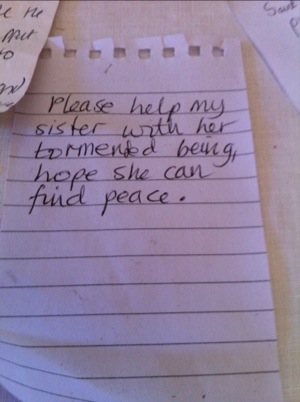 Please help my
sister with her
tormented being,
hope she can
find peace.